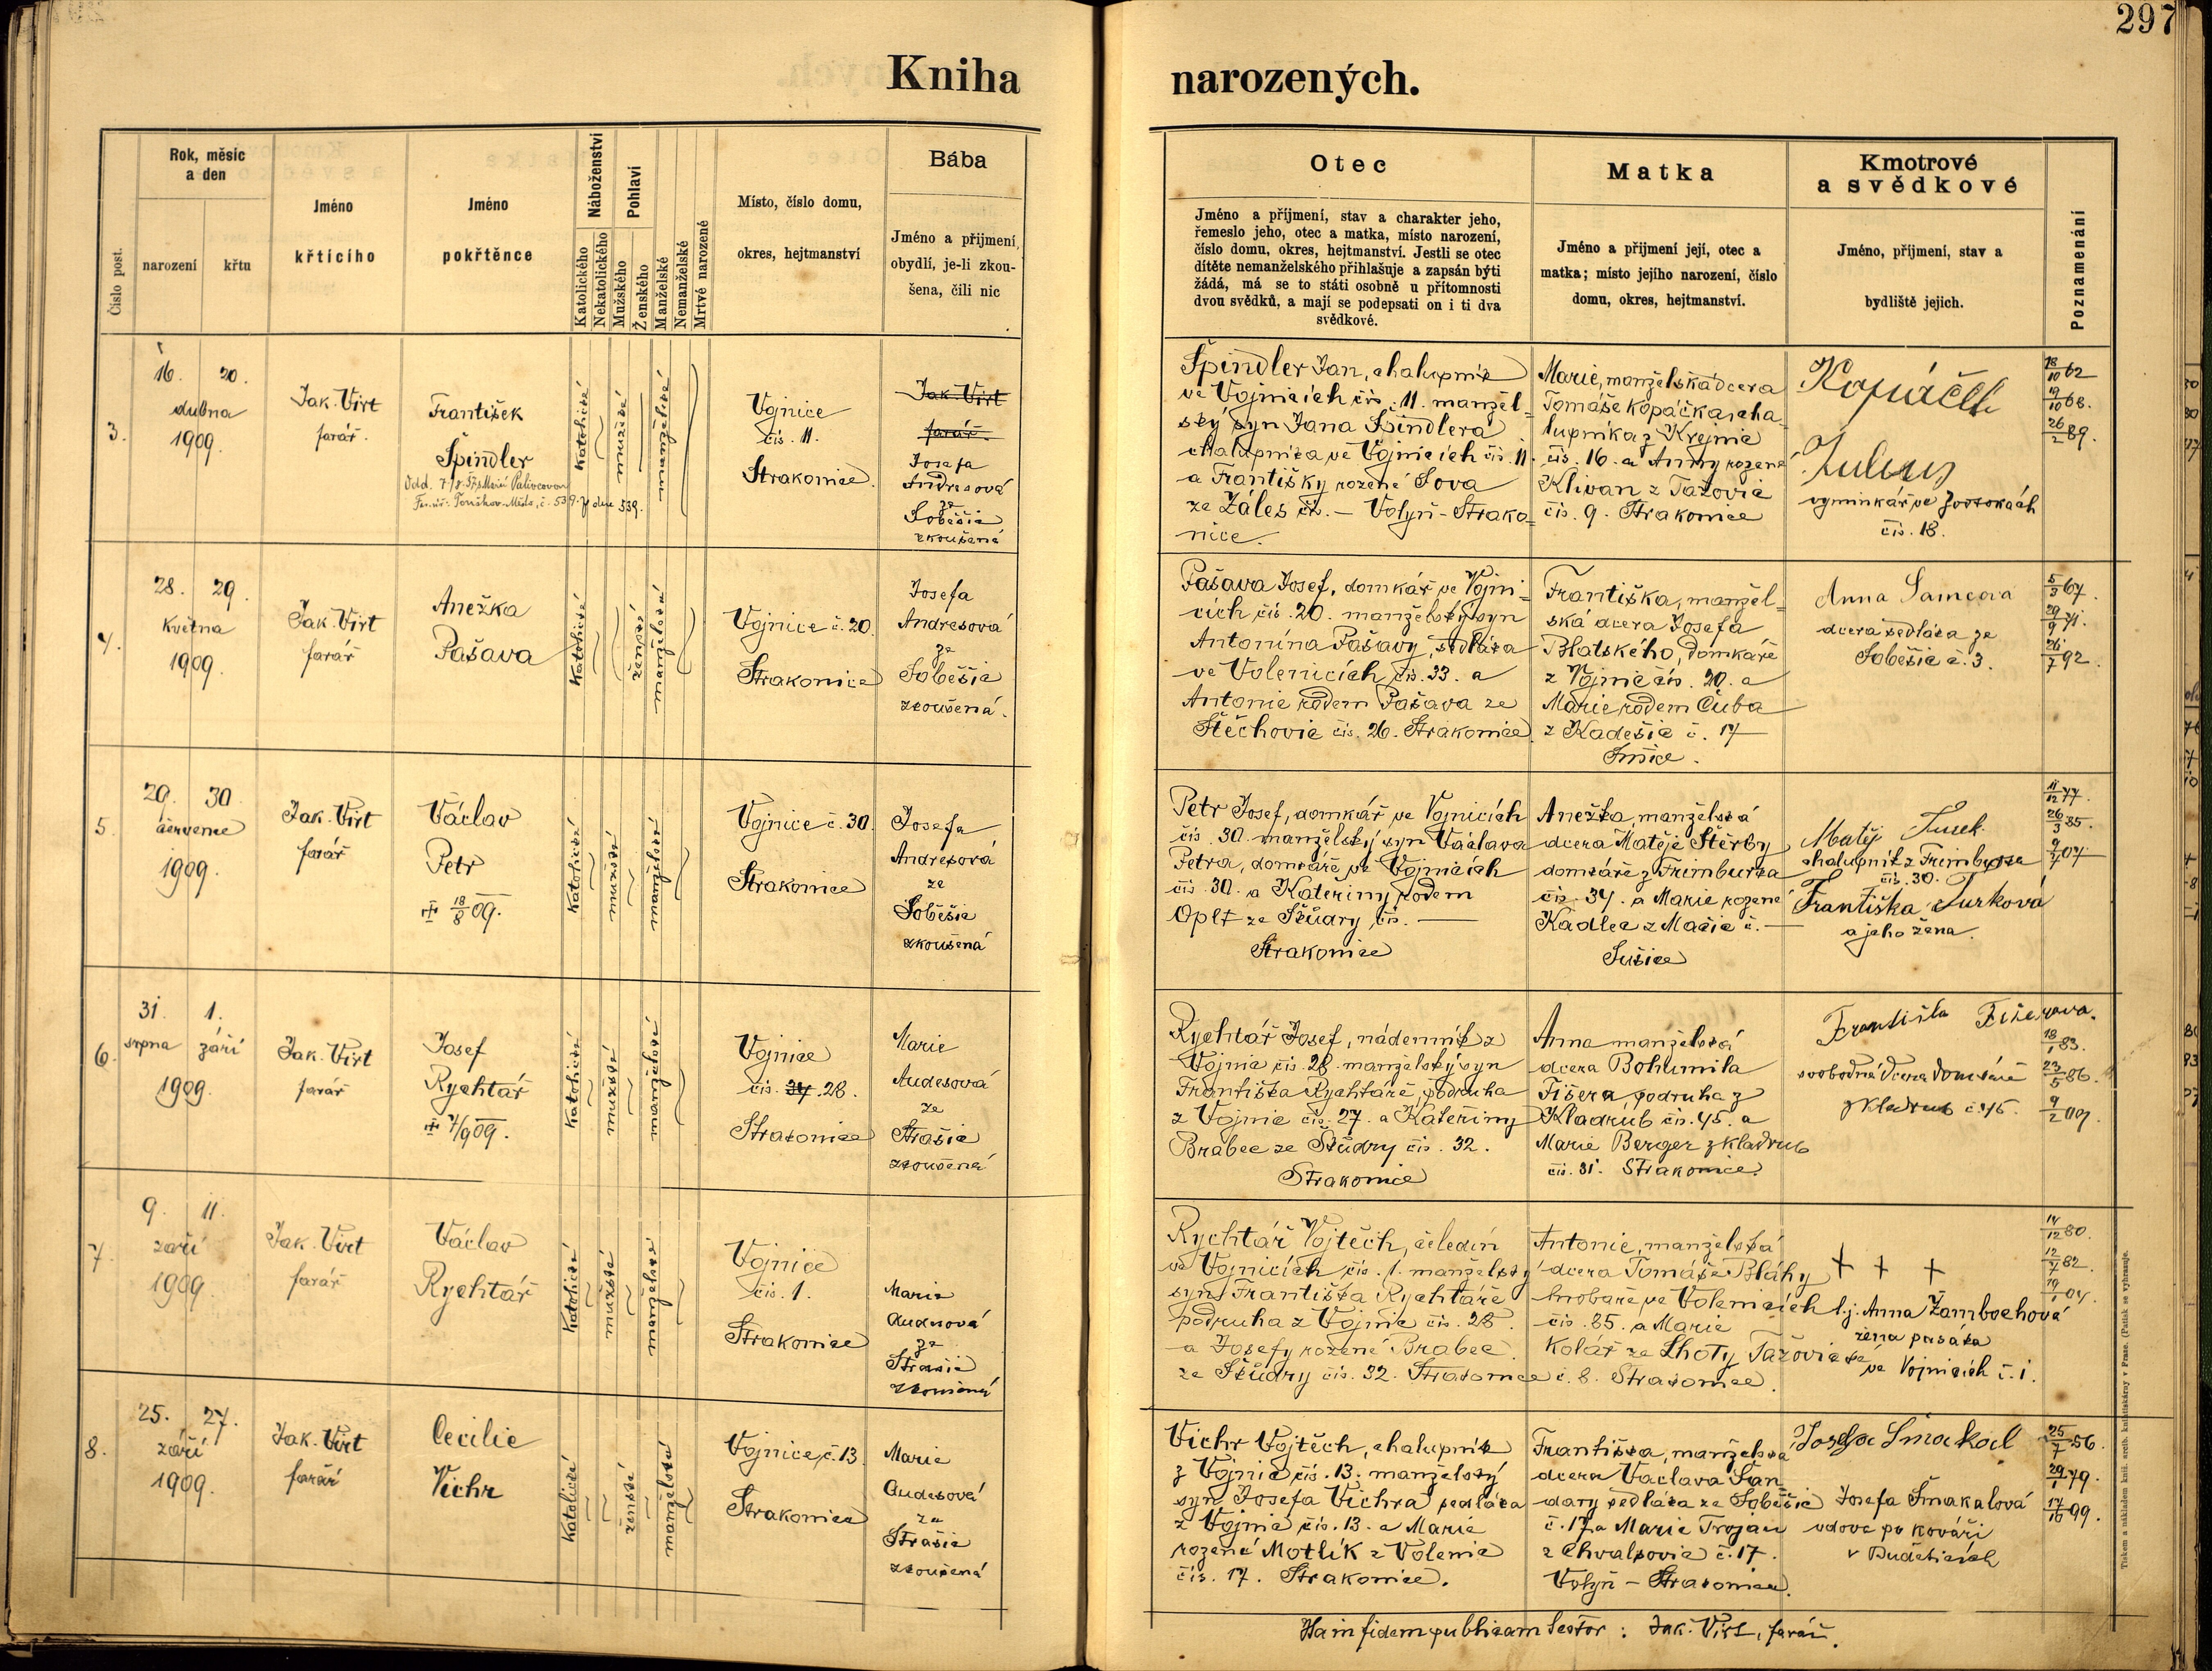 297
Kniha narozených.
Číslo post.
Rok, měsíc
a den
narození
křtu
Jméno
křticího
Jméno
pokřtěnce
Náboženství
Katolického
Nekatolického
Pohlaví
Mužského
Ženského
Manželské
Nemanželské
Mrtvě narozené
Místo, číslo domu,
okres, hejtmanství
Bába
Jméno a přijmení,
obydlí, je-li zkou-
šena, čili nic
Otec
Jméno a příjmení, stav a charakter jeho,
řemeslo jeho, otec a matka, místo narození,
číslo domu, okres, hejtmanství. Jestli se otec
dítěte nemanželského přihlašuje a zapsán býti
žádá, má se to státi osobně u přítomnosti
dvou svědků, a mají se podepsati on i ti dva
svědkové.
Matka
Jméno a přijmení její, otec a
matka; místo jejího narození, číslo
domu, okres, hejtmanství.
Kmotrové
a svědkové
Jméno, příjmení, stav a
bydliště jejich.
Poznamenání
3.
16. 20.
dubna
1909.
Jak. Virt
farář.
František
Špindler
katolické
mužské
manželské
Vojnice
čís. 11.
Strakonice
Jak. Virt
farář.
Josefa
Andresová
ze
Soběšic
zkoušená
Špindler Jan, chalupník
ve Vojnicích čís. 11. manžel-
ský syn Jana Špindlera
chalupníka ve Vojnicích čís. 11.
a Františky rozené Sova
ze Záles čís. — Volyň - Strako-
nice.
Marie, manželská dcera
Tomáše Kopáčka, cha-
lupníka z Krejnic
čís. 16. a Anny rozené
Klivan z Tažovic
čís. 9. Strakonice
Kopáček
vyminkář ve
čís. 18.
18/10 62
19/10 68.
26/2 89.
4.
28. 29.
května
1909.
Jak. Virt
farář
Anežka
Pašava
katolické
ženské
manželské
Vojnice č. 20.
Strakonice
Josefa
Andresová
ze
Soběšic
zkoušená.
Pašava Josef, domkář ve Vojni-
cích čís. 20. manželský syn
Antonína Pašavy, sedláka
ve Volenicích čís. 33. a
Antonie rodem Pašava ze
Štěchovic čís. 26. Strakonice.
Františka, manžel-
ská dcera Josefa
Blatského, domkáře
z Vojnic čís. 20. a
Marie rodem Čuba
z Kadešic č. 17
Sušice.
Anna Samcova
dcera sedláka ze
Soběšic č. 3.
5/3 67.
29/9 71.
26/7 92.
5.
29. 30
července
1909.
Jak. Virt
farář
Václav
Petr
18/8 09.
katolické
mužské
manželské
Vojnice č. 30.
Strakonice
Josefa
Andresová
ze
Soběšic
zkoušená
Petr Josef, domkář ve Vojnicích
čís. 30. manželský syn Václava
Petra, domkáře ve Vojnicích
čís. 30. a Kateřiny rodem
Oplt ze Škůdry čís. —
Strakonice
Anežka, manželská
dcera Matěje Štěrby
domkáře z Frimburka
čís. 34. a Marie rozené
Kadlec z Mačic č. —
Sušice
Matěj Turek.
chalupník z Frimburka
čís. 30.
Františka Turková
a jeho žena.
11/12 77.
26/3 85.
9/7 07
6.
31. 1.
srpna září
1909.
Jak. Virt
farář
Josef
Rychtář
7/9 09.
katolické
mužské
manželské
Vojnice
čís. 28.
Strakonice
Marie
Audesová
ze
Strašic
zkoušená
Rychtář Josef, nádenník z
Vojnic čís. 28. manželský syn
Františka Rychtáře, podruha
z Vojnic čís. 27. a Kateřiny
Brabec ze Škůdry čís. 32.
Strakonice
Anna manželská
dcera Bohumila
Fišera podruha z
Kladrub čís. 45. a
Marie Berger z Kladrub
čís. 31. Strakonice.
Františka Fišerova.
svobodná dcera domkáře
z Kladrub č. 45.
18/1 83.
23/5 86.
9/2 09.
7.
9. 11.
září
1909.
Jak. Virt
farář
Václav
Rychtář
katolické
mužské
manželské
Vojnice
čís. 1.
Strakonice
Marie
Audesová
ze
Strašic
zkoušená
Rychtář Vojtěch, čeledín
ve Vojnicích čís. 1. manželský
syn Františka Rychtáře
podruha z Vojnic čís. 28.
a Josefy rozené Brabec
ze Škůdry čís. 32. Strakonice
Antonie, manželská
dcera Tomáše Bláhy
hrobaře ve Volenicích
čís. 85. a Marie
Kolář ze Lhoty Tažovické
č. 8. Strakonice.
+ + +
t.j. Anna Žambochová
žena pasáka
ve Vojnicích č. 1.
14/12 80.
12/7 82.
19/1 04.
8.
25. 27.
září
1909.
Jak. Virt
farář
Cecilie
Vichr
katolické
ženské
manželské
Vojnice, č. 13.
Strakonice
Marie
Audesová
ze
Strašic
zkoušená
Vichr Vojtěch, chalupník
z Vojnic čís. 13. manželský
syn Josefa Vichra sedláka
z Vojnic čís. 13. a Marie
rozené Motlík z Volenic
čís. 17. Strakonice.
Františka, manželská
dcera Václava Šan-
dary sedláka ze Soběšic
č. 17 a Marie Trojan
z Chvalšovic č. 17.
Volyň - Strakonice.
Josefa Šmakal
Josefa Šmakalová
vdova po kováři
v Budeticích
25/7 56.
29/1 79.
17/10 99.
Ita in fidem publicam testor: Jak. Virt, farář.